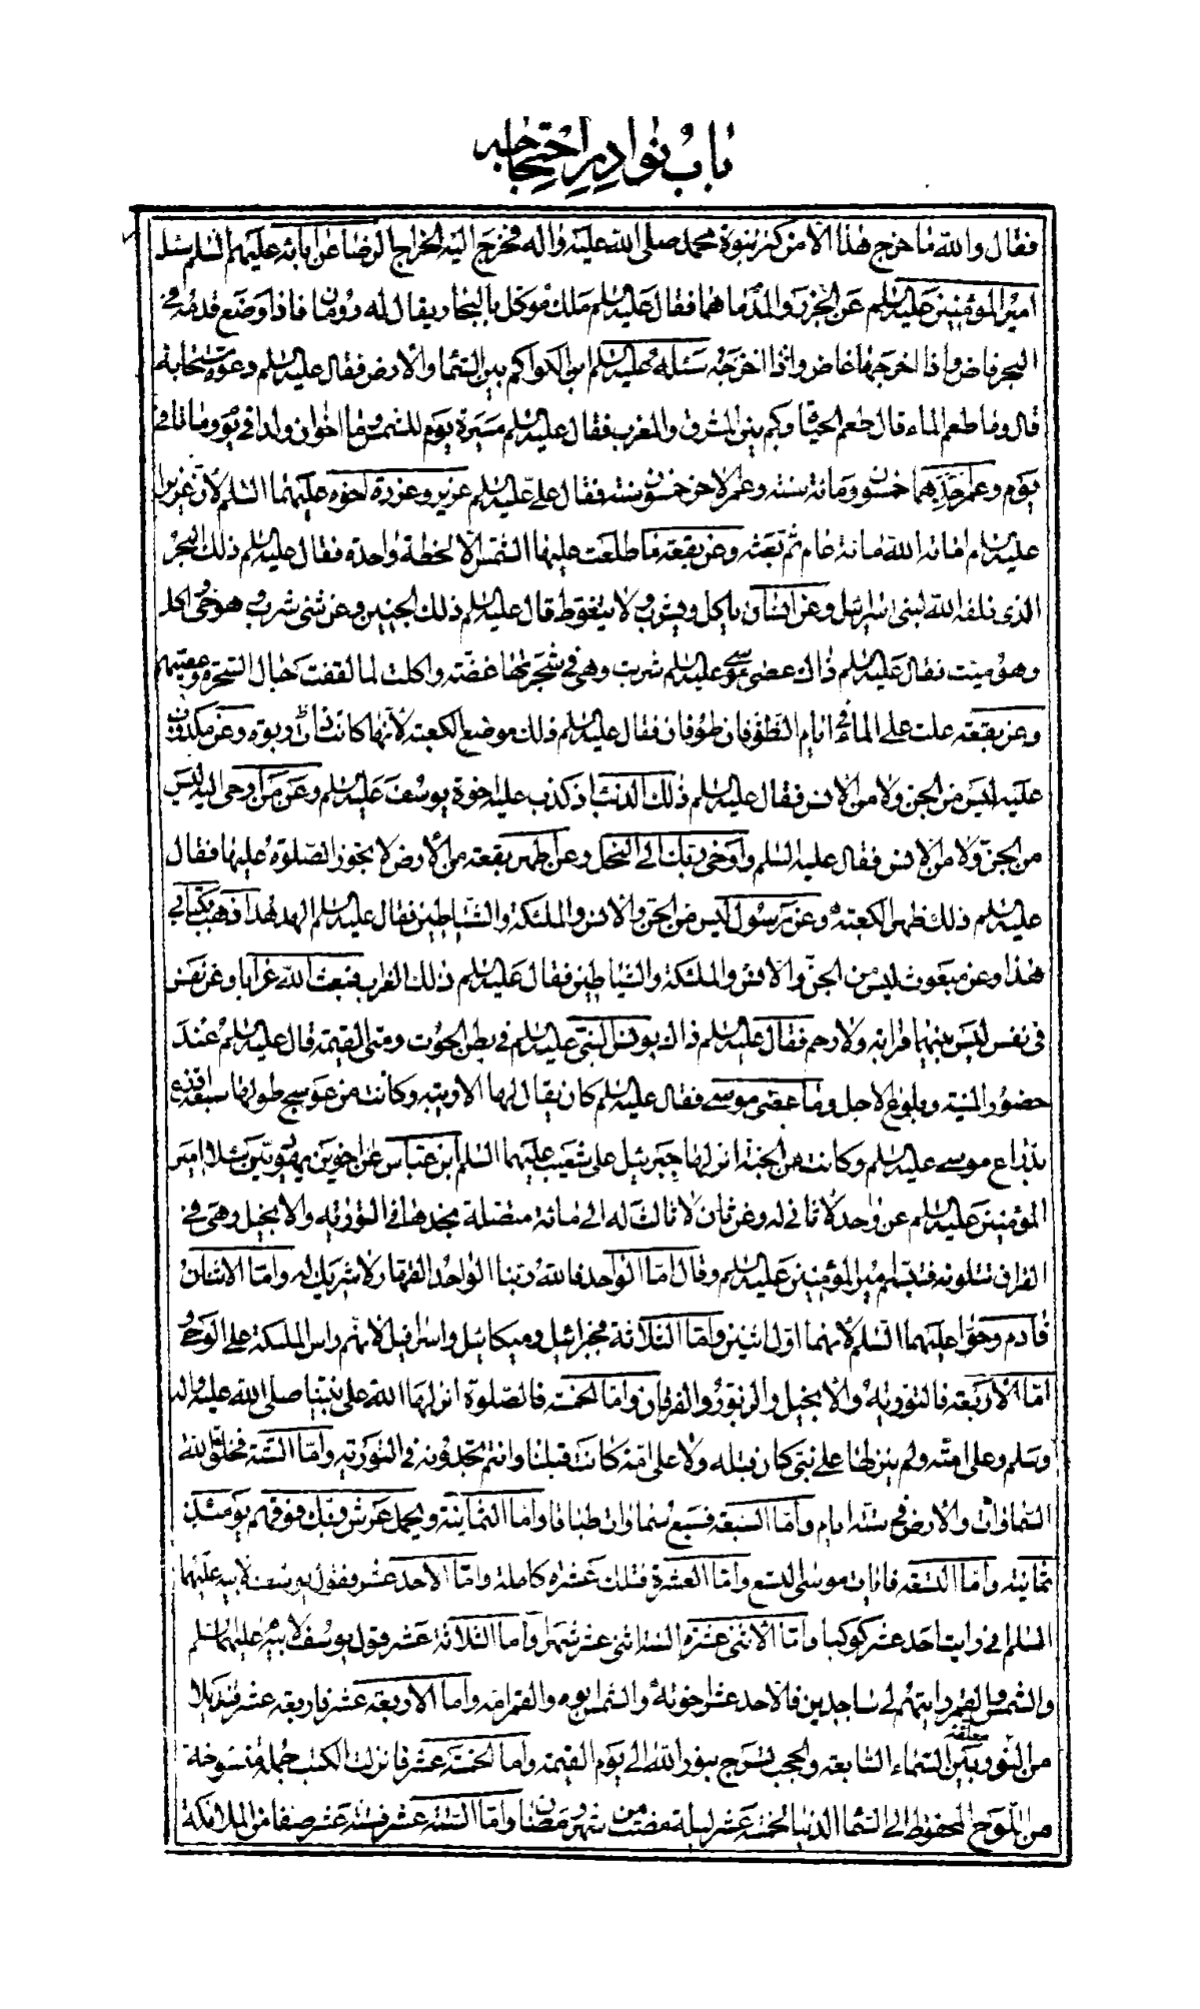 باب نوادر احتجاجه
فقال والله ما خرج هذا الا من كنز نبوة محمد صلى الله عليه واله فخرج اليه الخراج الرضا عن ابائه عليهم السلم سئل
امير المؤمنين عليه السلم عن الجزر والمد ما هما فقال عليه السلم ملك موكل بالبحار يقال له رومان فاذا وضع قدمه في
البحر فاض واذا اخرجها غاض واذا اخرجه سئله عليه السلم ابن الكوا كم بين السماء والارض فقال عليه السلم دعوة مستجابة
قال وما طعم الماء قال طعم الحيوة وكم بين المشرق والمغرب فقال عليه السلم مسيرة يوم للشمس وما اخوان ولدا في يوم وماتا في
يوم وعمر احدهما خمسون ومائة سنة وعمر الاخر خمسون سنة فقال علي عليه السلم عزير وعزرة اخوه عليهما السلم لان عزيرا
عليه السلم اماته الله مائة عام ثم بعثه وعن بقعة ما طلعت عليها الشمس الا لحظة واحدة فقال عليه السلم ذلك البحر
الذي فلقه الله لبني اسرائيل وعن انسان ياكل ويشرب ولا يتغوط قال عليه السلم ذلك الجنين وعن شئ شرب وهو حي واكل
وهو ميت فقال عليه السلم ذاك عصى موسى عليه السلم شربت وهي في شجرتها غضة واكلت لما لقفت حبال السحرة وعصيهم
وعن بقعة علت على الماء في ايام الطوفان طوفان فقال عليه السلم ذلك موضع الكعبة لانها كانت ربوة وعن مكذوب
عليه ليس من الجن ولا من الانس فقال عليه السلم ذلك الذئب اذ كذب عليه اخوة يوسف عليه السلم وعن من اوحى اليه ليس
من الجن ولا من الانس فقال عليه السلم واوحى ربك الى النحل وعن اطهر بقعة من الارض لا يجوز الصلوة عليها فقال
عليه السلم ذلك ظهر الكعبة وعن رسول ليس من الجن والانس والملئكة والشياطين فقال عليه السلم الهدهد اذهب بكتابي
هذا وعن مبعوث ليس من الجن والانس والملئكة والشياطين فقال عليه السلم ذلك الغراب فبعث الله غرابا وعن نفس
في نفس ليس بينهما قرابة ولا رحم فقال عليه السلم ذاك يونس النبي عليه السلم في بطن الحوت ومتى القيمة قال عليه السلم عند
حضور المنية وبلوغ الاجل وما عصى موسى فقال عليه السلم كان يقال لها الاربية وكانت من عوسج طولها سبعة اذرع
بذراع موسى عليه السلم وكانت من الجنة انزلها جبرئيل على شعيب عليهما السلم ابن عباس عن اخوين يهوديين سئلا امير
المؤمنين عليه السلم عن واحد لا ثاني له وعن ثان لا ثالث له الى مائة متصلة نجدها في التورية والانجيل وهي في
القران تتلونه فتبسم امير المؤمنين عليه السلم وقال اما الواحد فالله ربنا الواحد القهار لا شريك له واما الاثنان
فادم وحوا عليهما السلم لانهما اول اثنين واما الثلاثة فجبرائيل وميكائيل واسرافيل لانهم راس الملئكة على الوحي و
اما الاربعة فالتورية والانجيل والزبور والفرقان واما الخمسة فالصلوة انزلها الله على نبينا صلى الله عليه واله
وسلم وعلى امته ولم ينزلها على نبي كان قبله ولا على امة كانت قبلنا وانتم تجدونه في التورية واما الستة فخلق الله
السماوات والارض في ستة ايام واما السبعة فسبع سماوات طباقا واما الثمانية ويحمل عرش ربك فوقهم يومئذ
ثمانية واما التسعة فايات موسى التسع واما العشرة فتلك عشرة كاملة واما الاحد عشر فقول يوسف لابيه عليهما
السلم اني رايت احد عشر كوكبا واما الاثنى عشرة السنة اثنى عشر شهرا واما الثلاثة عشر قول يوسف لابيه عليهما السلم
والشمس والقمر رايتهم لي ساجدين فالاحد عشر اخوته والشمس ابوه والقمر امه واما الاربعة عشر فاربعة عشر قنديلا
من النور معلقة بين السماء السابعة والحجب تسرج بنور الله الى يوم القيمة واما الخمسة عشر فانزلت الكتب جملة منسوخة
من اللوح المحفوظ الى السماء الدنيا لخمسة عشر ليلة مضت من شهر رمضان واما الستة عشر فستة عشر صفا من الملائكة